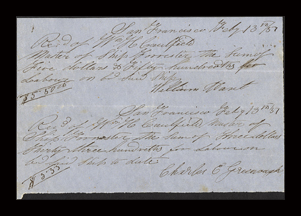 San Francisco Feby 13th /51
Recd of W H Caulfield
Master of Ship Forrester the sum of
Five Dollars & Fifty hundredths for
Labour on bd said Ship
William Hant
$5.50/100
San Francisco Feby 13th /51
Recd of W H Caulfield Master of
Ship Forrester the sum of Three dollars
thirty three hundredths for labour on
bd said ship to date
Charles C Greenough
$3.33